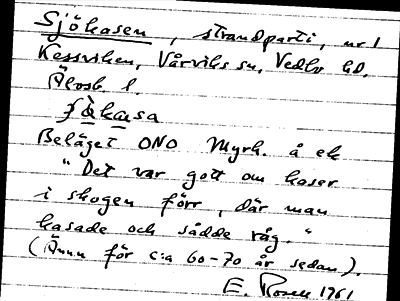 Sjökasen, strandparti, nr 1
Kessviken, Vårviks sn, Vedbo hd.
Älvsb. l.
Beläget ONO Myrh. å ek
"Det var gott om kaser
i skogen förr, där man
kasade och sådde råg."
(Ännu för c:a 60-70 år sedan).
E. Rosell 1961